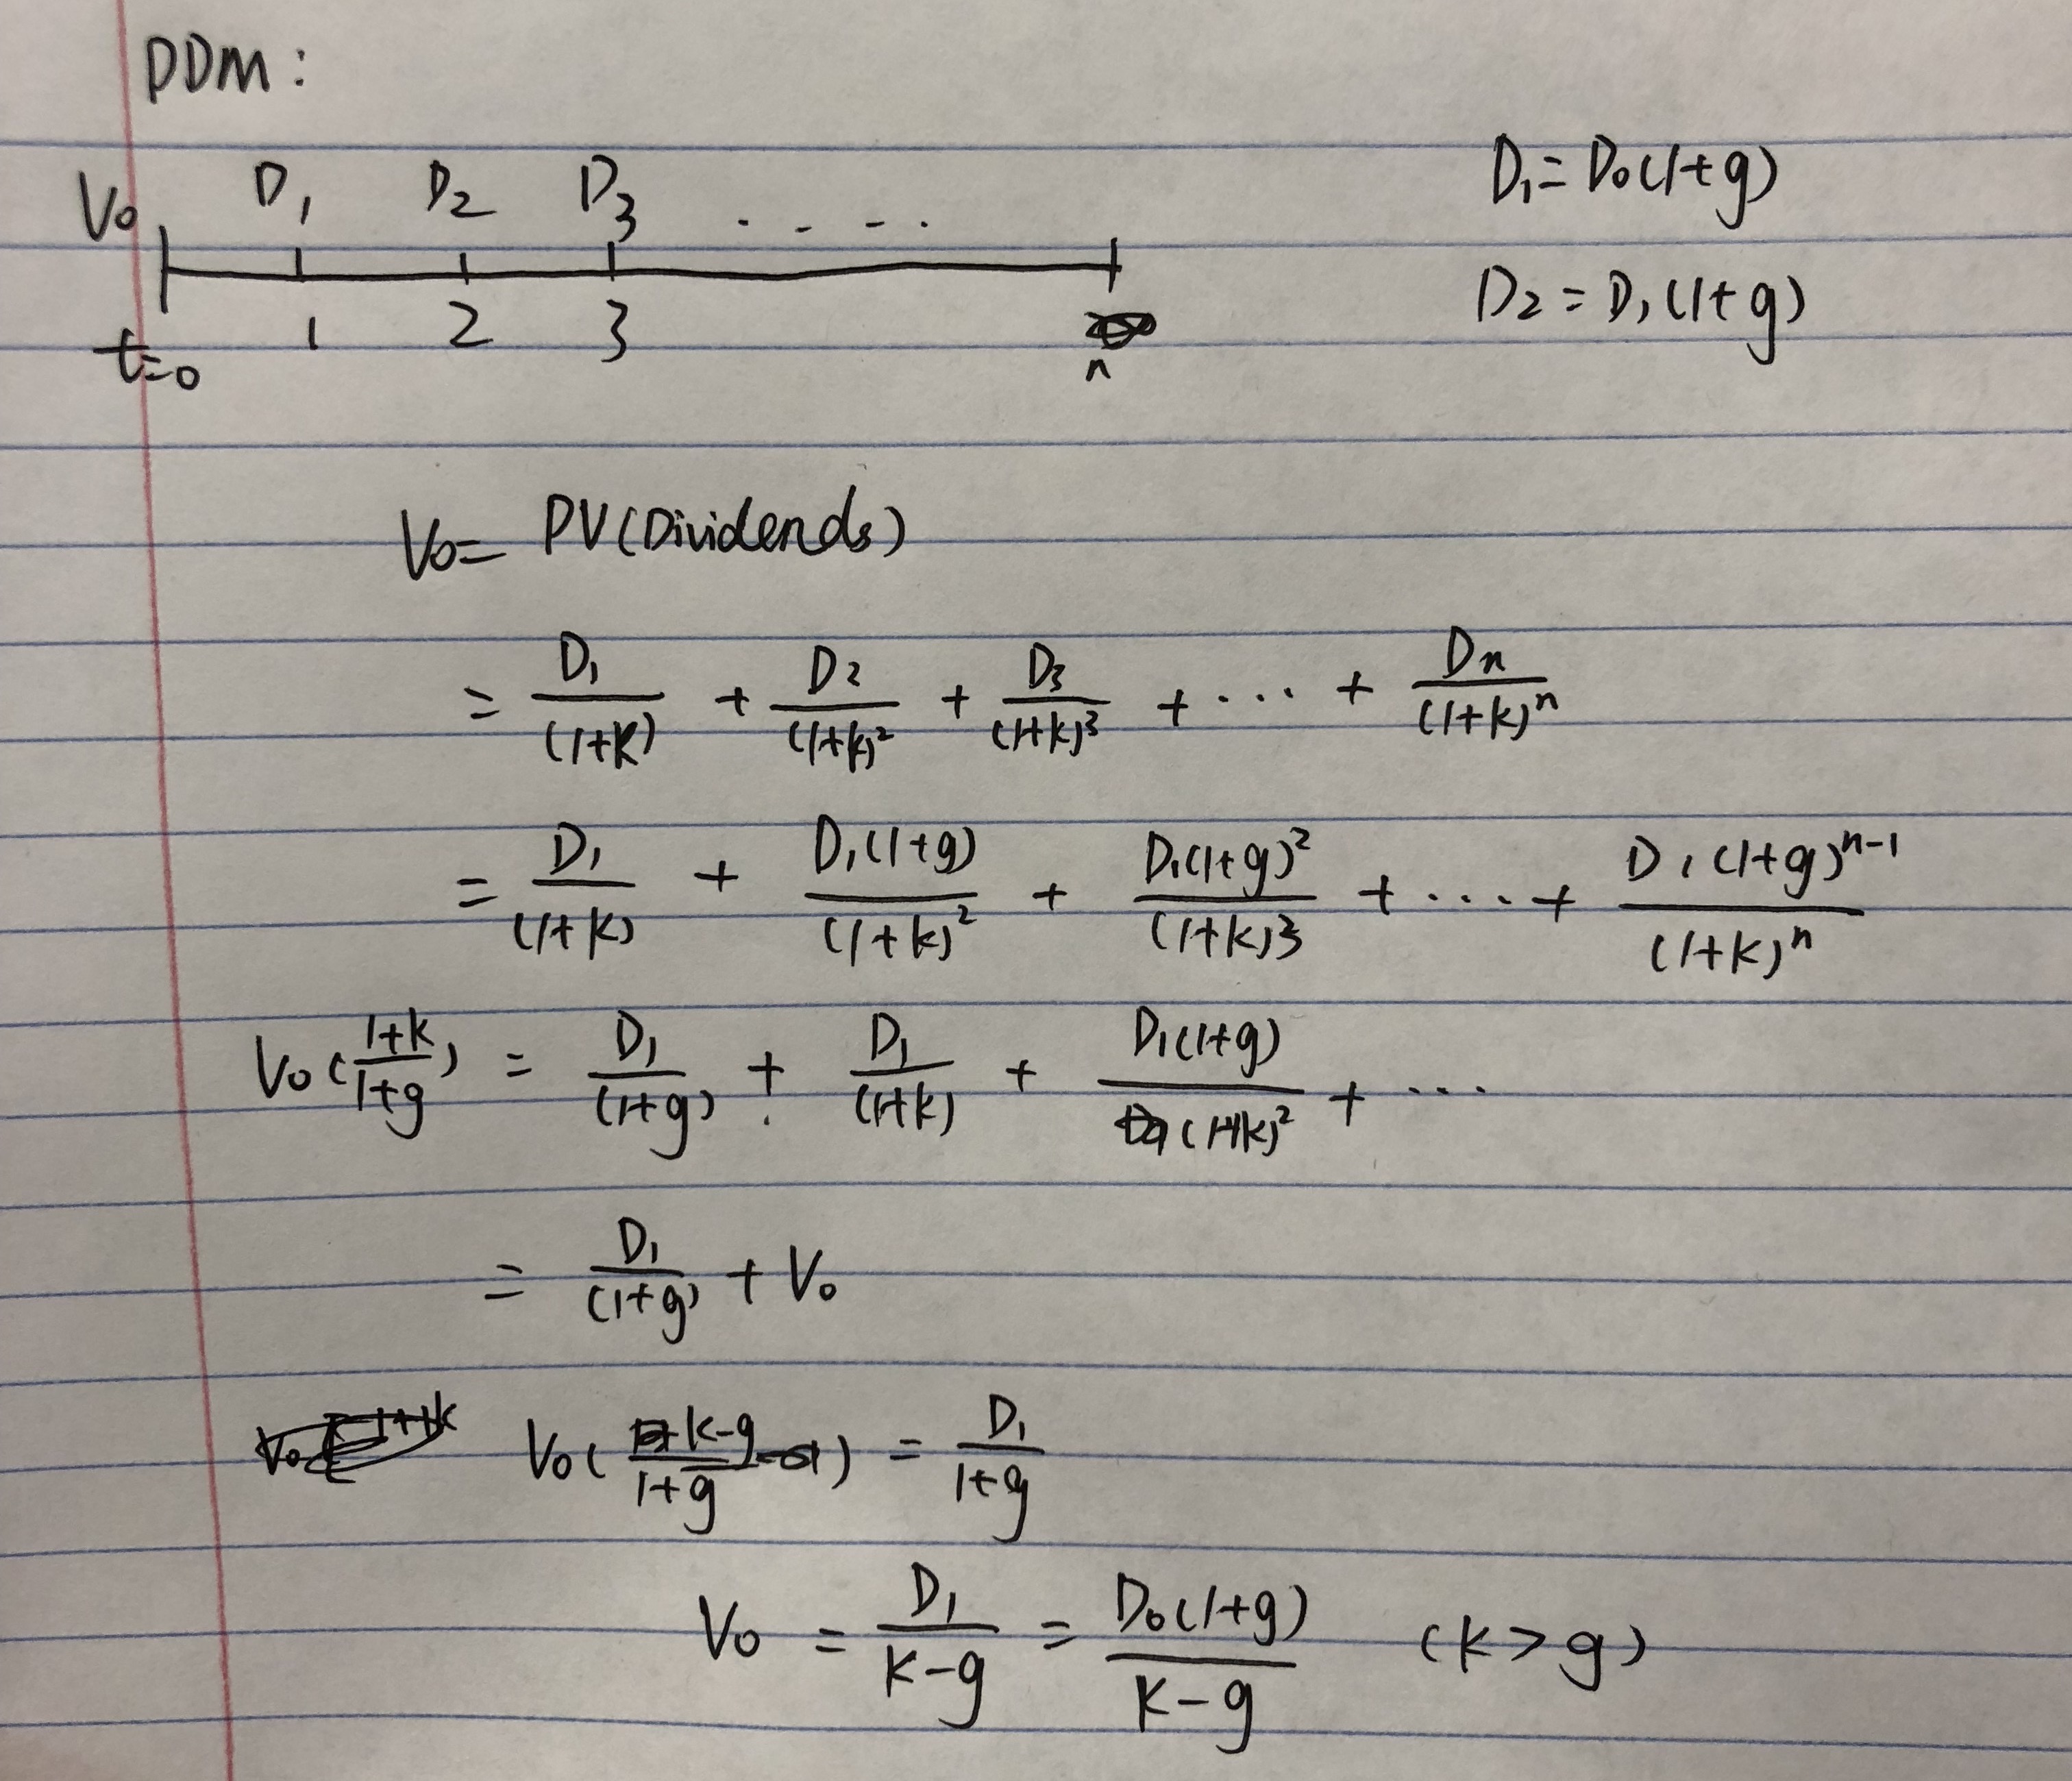 DDM:
V₀ D₁ D₂ D₃ · - - · D₁=D₀(1+g)
t=0 1 2 3 n D₂=D₁(1+g)
V₀= PV(Dividends)
= D₁/(1+k) + D₂/(1+k)² + D₃/(1+k)³ + ··· + Dn/(1+k)ⁿ
= D₁/(1+k) + D₁(1+g)/(1+k)² + D₁(1+g)²/(1+k)³ + ···· + D₁(1+g)ⁿ⁻¹/(1+k)ⁿ
V₀(1+k/1+g) = D₁/(1+g) + D₁/(1+k) + D₁(1+g)/(1+k)² + ···
= D₁/(1+g) + V₀
V₀(k-g/1+g) = D₁/1+g
V₀ = D₁/k-g = D₀(1+g)/k-g (k>g)